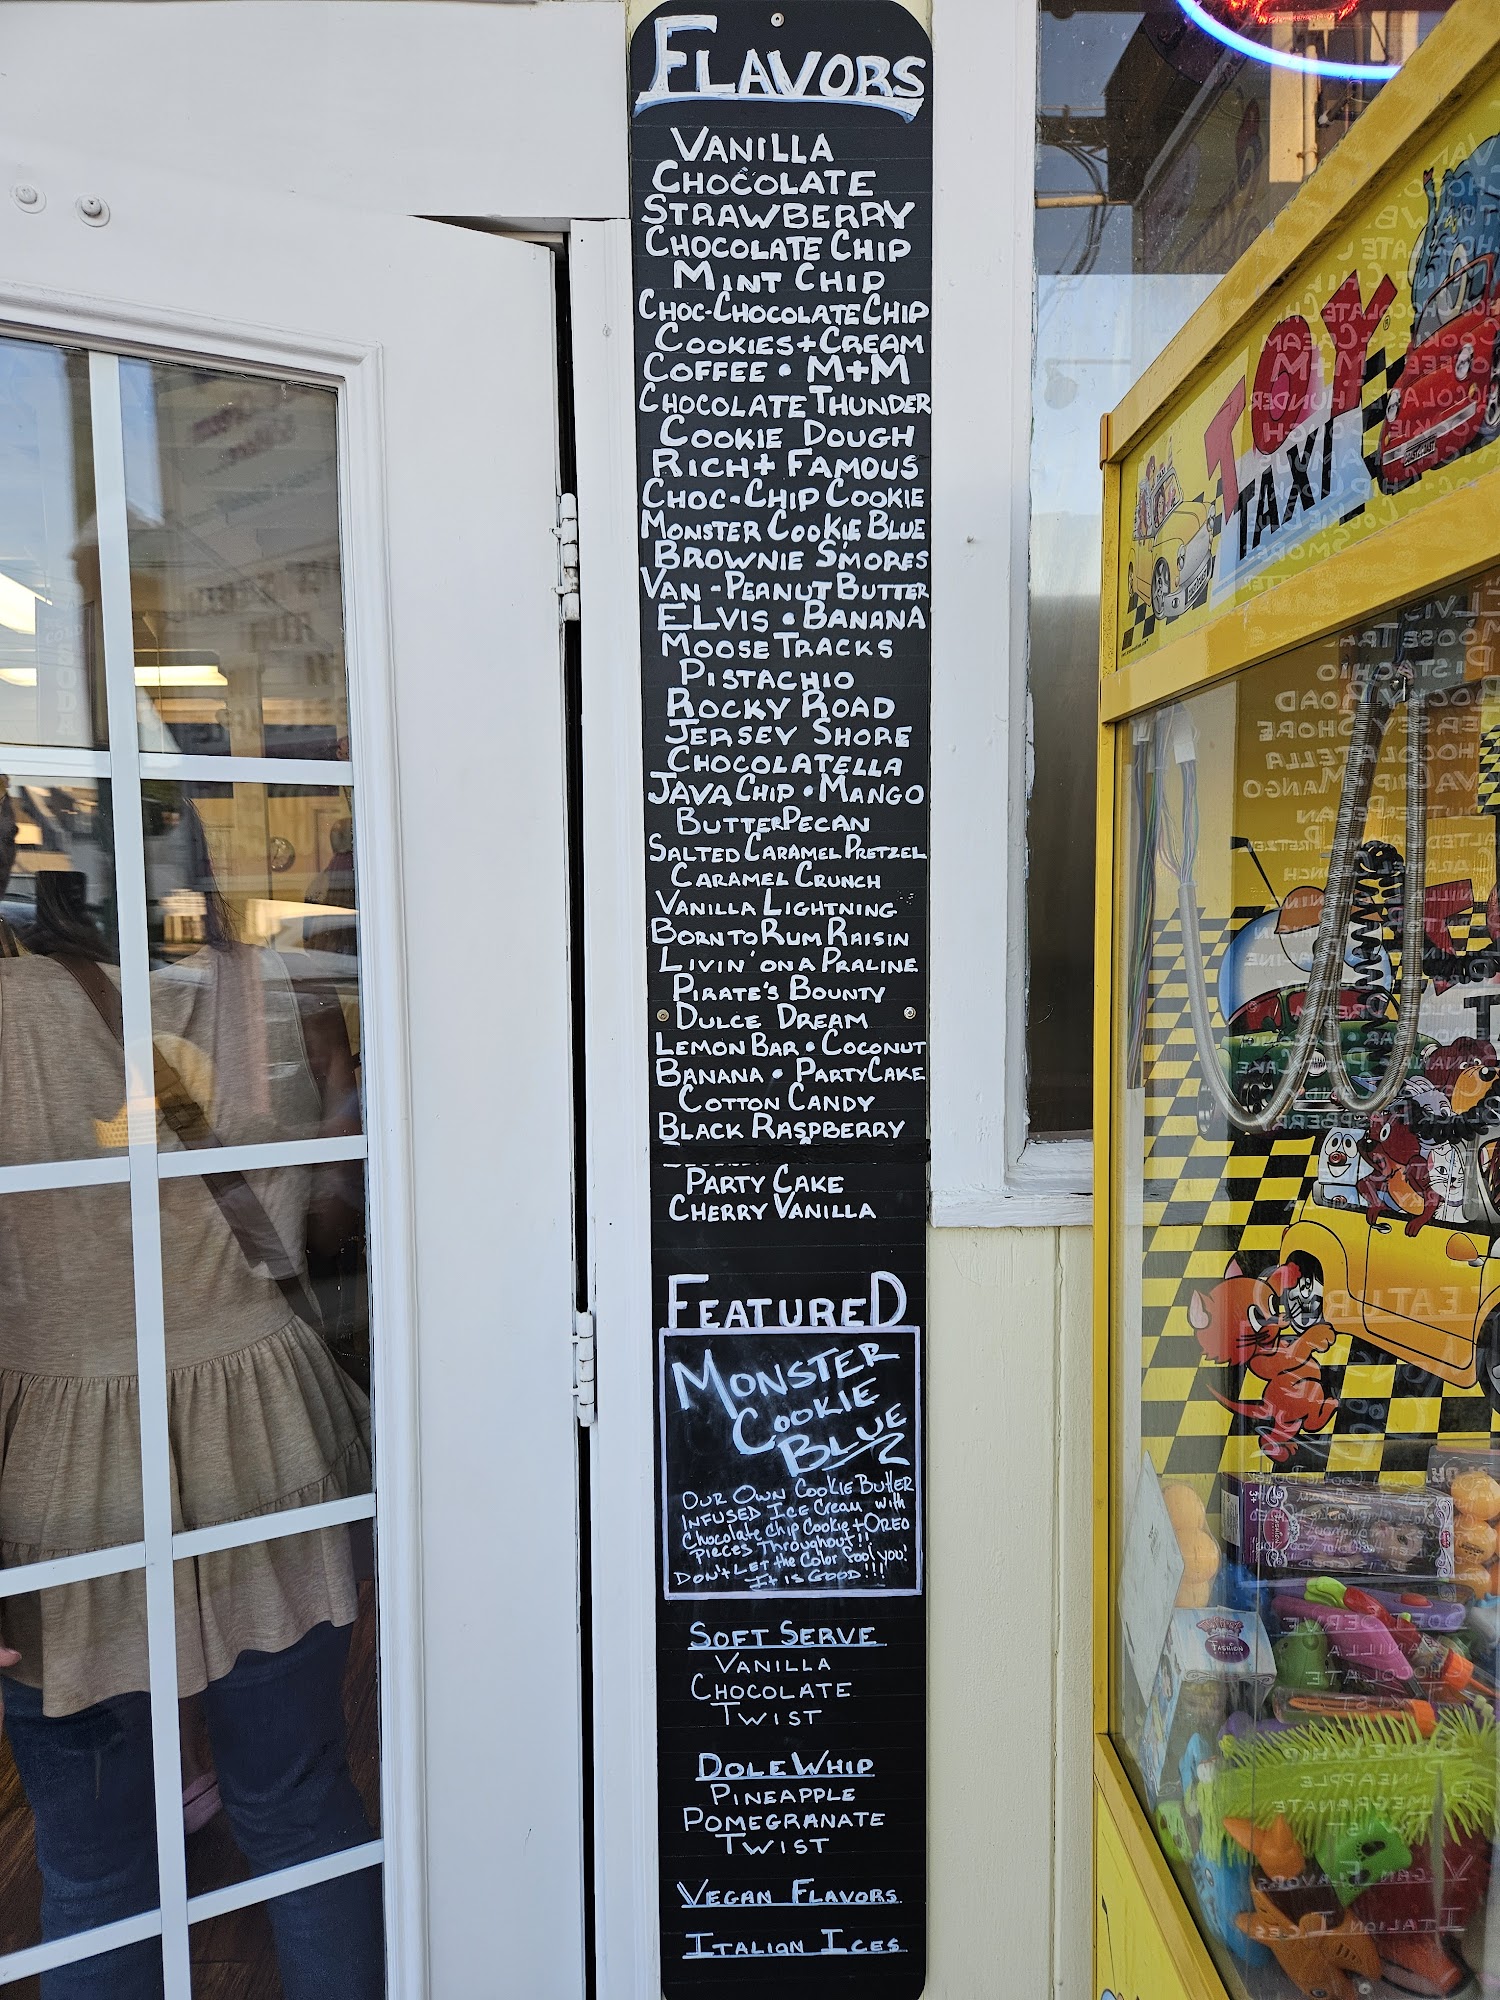 FLAVORS
VANILLA
CHOCOLATE
STRAWBERRY
CHOCOLATE CHIP
MINT CHIP
CHOC-CHOCOLATE CHIP
COOKIES + CREAM
COFFEE • M+M
CHOCOLATE THUNDER
COOKIE DOUGH
RICH + FAMOUS
CHOC-CHIP COOKIE
MONSTER COOKIE BLUE
BROWNIE S'MORES
VAN-PEANUT BUTTER
ELVIS • BANANA
MOOSE TRACKS
PISTACHIO
ROCKY ROAD
JERSEY SHORE
CHOCOLATELLA
JAVA CHIP • MANGO
BUTTER PECAN
SALTED CARAMEL PRETZEL
CARAMEL CRUNCH
VANILLA LIGHTNING
BORN TO RUM RAISIN
LIVIN' ON A PRALINE
PIRATE'S BOUNTY
DULCE DREAM
LEMON BAR • COCONUT
BANANA • PARTY CAKE
COTTON CANDY
BLACK RASPBERRY
PARTY CAKE
CHERRY VANILLA
FEATURED
MONSTER
COOKIE
BLUE
OUR OWN COOKIE BUTTER
INFUSED ICE CREAM with
Chocolate chip cookie + OREO
PIECES THROUGHOUT!!
DON'T LET the COLOR fool you!
IT IS GOOD!!!
SOFT SERVE
VANILLA
CHOCOLATE
TWIST
DOLE WHIP
PINEAPPLE
POMEGRANATE
TWIST
VEGAN FLAVORS
ITALIAN ICES
TOY
TAXI